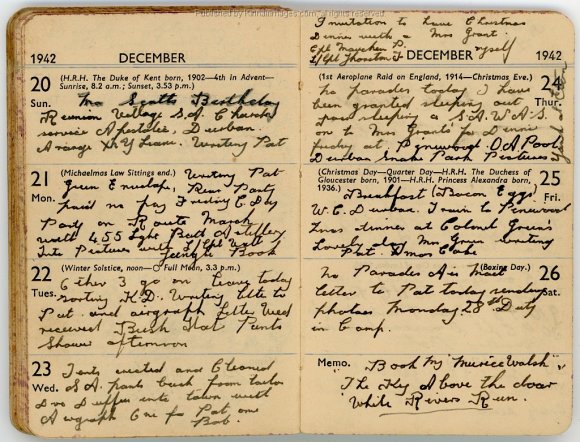 Published by Kindleimages.com, all rights reserved.
1942 DECEMBER
20 (H.R.H. The Duke of Kent born, 1902—4th in Advent—
Sunrise, 8.2 a.m.; Sunset, 3.53 p.m.)
Sun. Mr Birthday
Reunion Village S.A. Church
service Apostolic, Durban.
Arrange Leave. Writing Pat
21 (Michaelmas Law Sittings end.) Writing Pat
Mon. Green Envelope, Rear Party
paid no pay
Party on Route March
with 455 Light Batt Artillery
Into Pictures with L/Cpl Wall
Book
22 (Winter Solstice, noon—O Full Moon, 3.3 p.m.)
Tues. Other 3 go on leave today
sorting K.D. Writing little to
Pat and airgraph letter
received Bush Hat Pants
Shower afternoon
23 Tents erected and Cleaned
Wed. S.A. pants back from tailor
into town with
Airgraph One for Pat one
Bob.
Invitation to have Christmas
Dinner with a Mrs Grant.
Cpl P. myself
L/Cpl
DECEMBER 1942
(1st Aeroplane Raid on England, 1914—Christmas Eve.) 24
no parades today I have Thur.
been granted sleeping out
pass sleeping a S.A.W.A.S.
on to Mrs Grants for Dinner
friday at Pynewood. Pool
Durban Snake Park Pictures
(Christmas Day—Quarter Day—H.R.H. The Duchess of 25
Gloucester born, 1901—H.R.H. Princess Alexandra born,
1936.) Breakfast (Bacon Eggs) Fri.
W.C. Durban. Train to Pinewood
Xmas dinner at Colonel Green's
Lovely day Mrs Green writing
Pat. Cake
(Boxing Day.) 26
no Parades Air mail
letter to Pat today sending Sat.
photos Monday 28th Duty
in Camp.
Memo. "Book by Maurice Walsh"
"The Key Above the door
While Rivers Run.